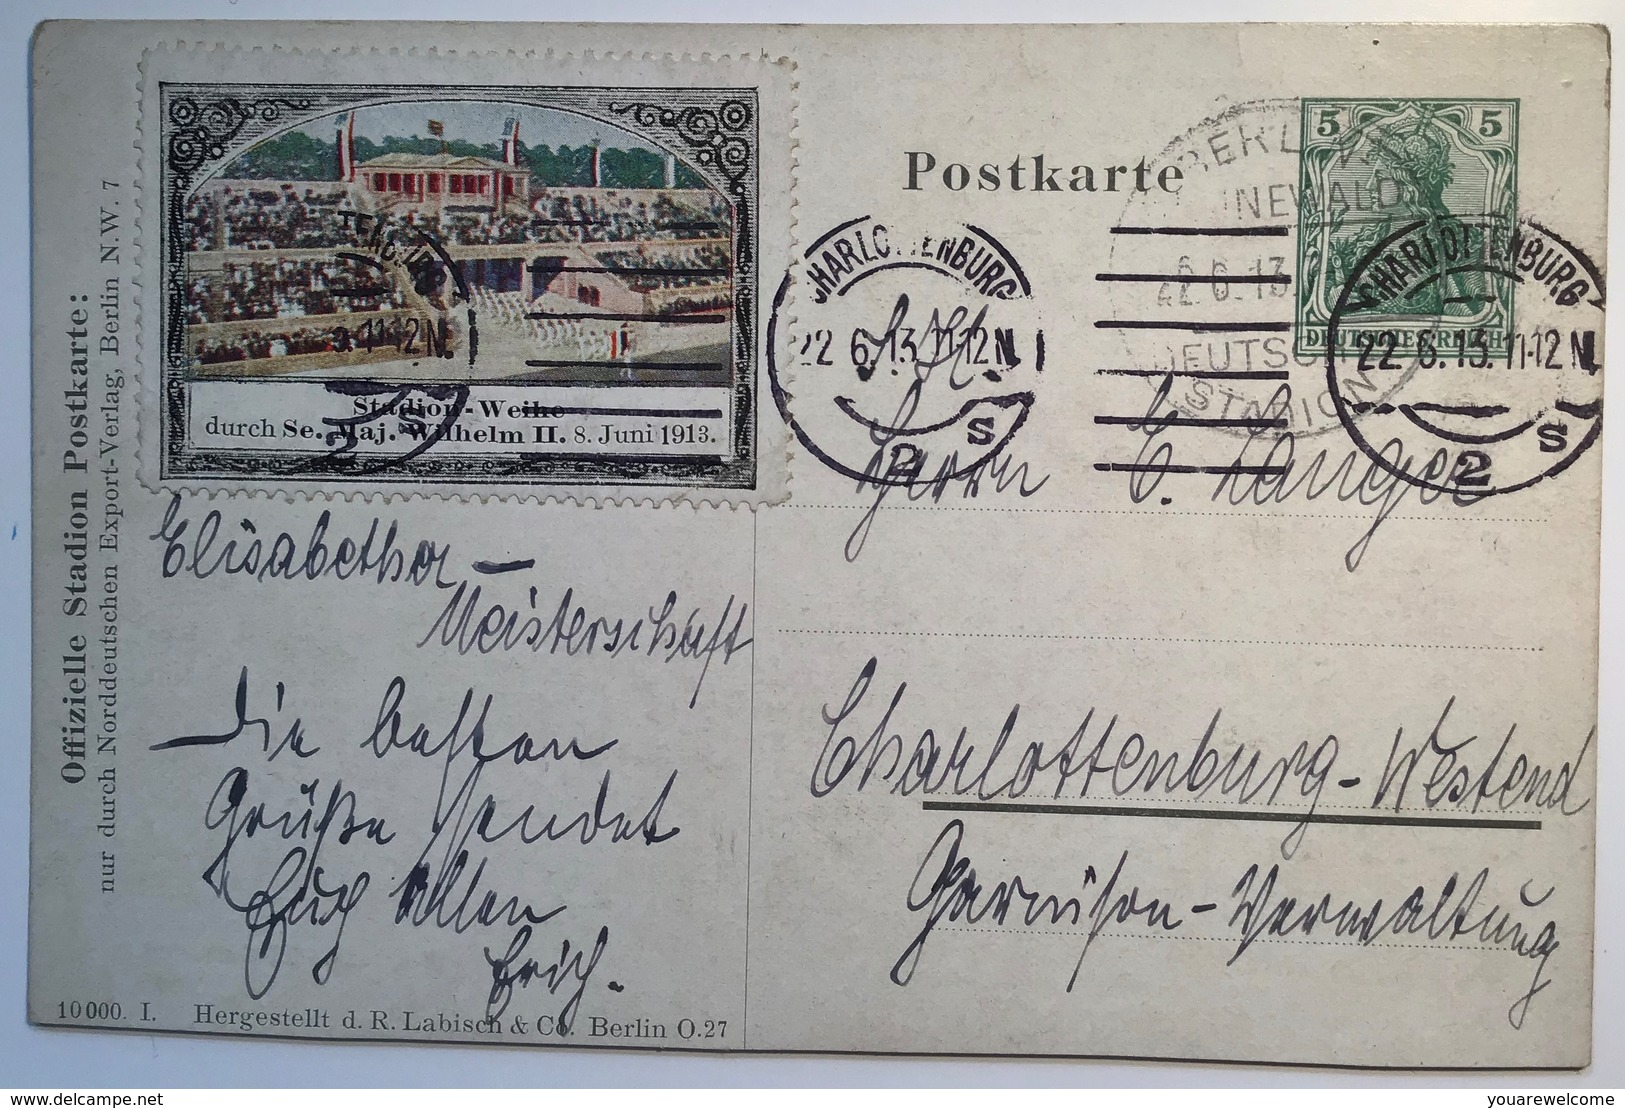 Offizielle Stadion Postkarte:
nur durch Norddeutschen Export-Verlag, Berlin N.W. 7
Stadion-Weihe
durch Se. Maj. Wilhelm II. 8. Juni 1913.
Postkarte
5 5
DEUTSCHES REICH
BERLIN
NEWALD
22.6.13
DEUTSCH
STADION
CHARLOTTENBURG
22 6.13 11-12 N.
2 s
CHARLOTTENBURG
22.6.13.11-12 N.
2 s
11-12 N.
Herrn C. Langer
Charlottenburg-Westend
Garnison-Verwaltung
Elisabether-
Meisterschaft
Die besten
Grüße sendet
Euch allen
Erich.
10000. I. Hergestellt d. R. Labisch & Co. Berlin O.27
delcampe.net
youarewelcome